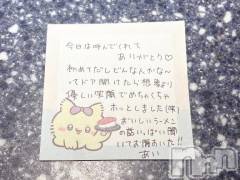 今日は呼んでくれて
ありがとう♡
初めてだしどんなかな〜
ってドア開けたら想像より
優しい笑顔でめちゃくちゃ
ホッとしました(笑)
おいしいラーメン
の話いっぱい聞い
てお腹すいた!!
あい